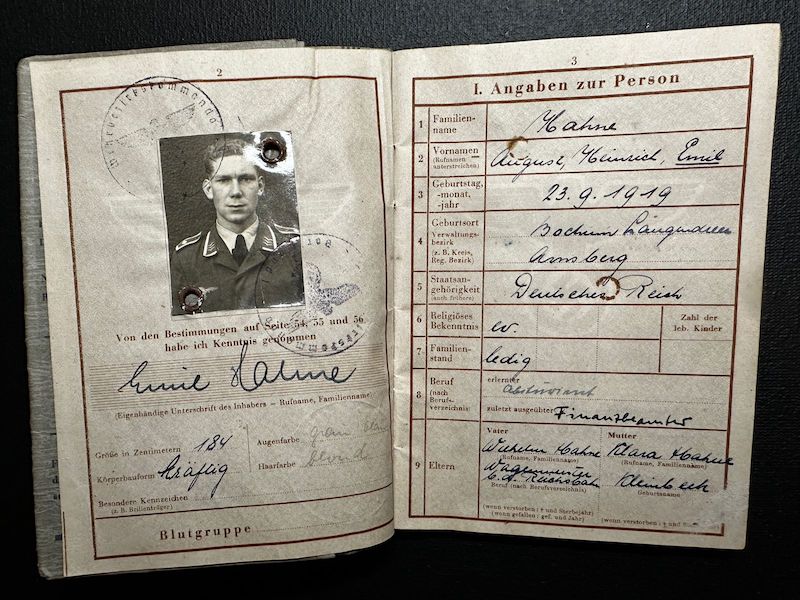 2
Wehrbezirkskommando
Von den Bestimmungen auf Seite 54, 55 und 56
habe ich Kenntnis genommen
Emil Hahne
(Eigenhändige Unterschrift des Inhabers – Rufname, Familienname)
Größe in Zentimetern 184
Augenfarbe grau blau
Körperbauform kräftig
Haarfarbe blond
Besondere Kennzeichen
(z. B. Brillenträger)
Blutgruppe
3
I. Angaben zur Person
1 Familien-
name
Hahne
2 Vornamen
(Rufnamen
unterstreichen)
August, Heinrich, Emil
3 Geburtstag,
-monat,
-jahr
23.9.1919
4 Geburtsort
Verwaltungs-
bezirk
(z. B. Kreis,
Reg. Bezirk)
Bochum Langendreer
Arnsberg
5 Staatsan-
gehörigkeit
(auch frühere)
Deutsches Reich
6 Religiöses
Bekenntnis
ev.
Zahl der
leb. Kinder
7 Familien-
stand
ledig
8 Beruf
(nach
Berufs-
verzeichnis)
erlernter
Abiturient
zuletzt ausgeübter
Finanzbeamter
9 Eltern
Vater
Wilhelm Hahne
(Rufname, Familienname)
Wagenmeister
b. d. Reichsbahn
Beruf (nach Berufsverzeichnis)
Mutter
Klara Hahne
(Rufname, Familienname)
Geburtsname
(wenn verstorben: † und Sterbejahr)
(wenn gefallen: gef. und Jahr)
(wenn verstorben: † und